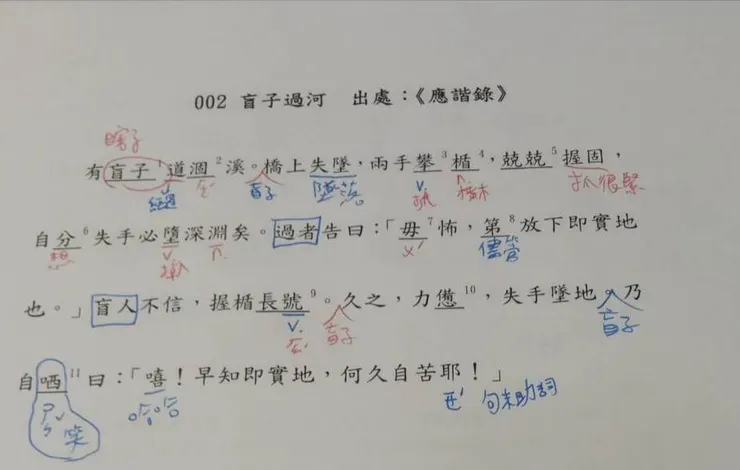 002 盲子過河 出處：《應諧錄》
瞎子
有盲子¹道涸²溪。橋上失墜，兩手攀³楯⁴，兢兢⁵握固，
經過 盲子 墜落 v. n. 橫木 抓很緊
自分⁶失手必墮深淵矣。過者告曰：「毋⁷怖，第⁸放下即實地
想 v. 掉入 n. ㄨˊ 儘管
也。」盲人不信，握楯長號⁹。久之，力憊¹⁰，失手墜地。乃
v. 盲子 盲子
自哂¹¹曰：「嘻！早知即實地，何久自苦耶！」
ㄕㄣˇ 笑 哈哈 ㄧㄝˊ 句末助詞